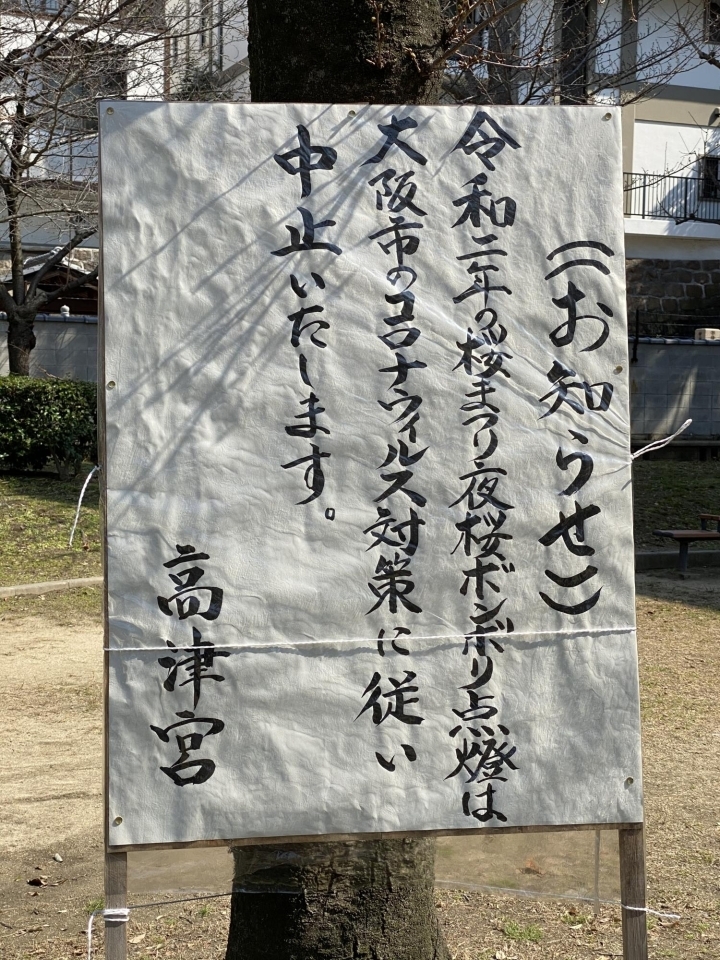 (お知らせ)
令和二年の桜まつり夜桜ボンボリ点燈は
大阪市のコロナウィルス対策に従い
中止いたします。
高津宮